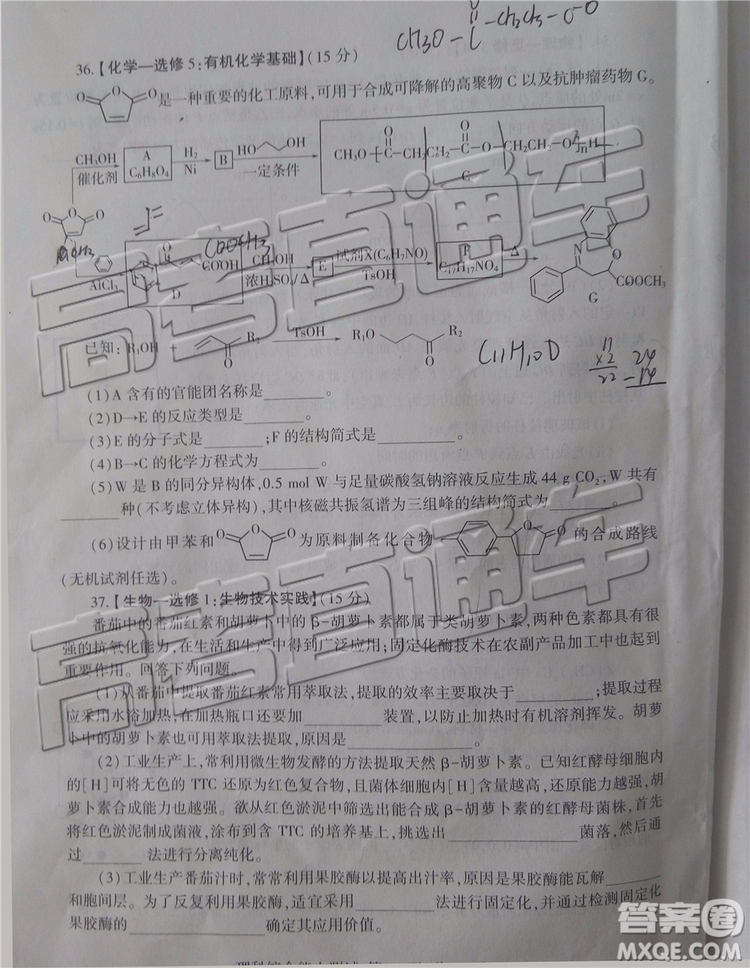 CH3O-C(=O)-CH2CH2-O-O
36.【化学—选修5:有机化学基础】(15分)
是一种重要的化工原料,可用于合成可降解的高聚物C以及抗肿瘤药物G。
CH3OH 催化剂 A C6H8O4 H2 Ni B HO OH 一定条件 CH3O C CH2CH2 C O CH2CH2 O n H
C
AlCl3 COOH D CH3OH 浓H2SO4/Δ E 试剂X(C6H7NO) TsOH F C17H17NO4 Δ COOCH3 G
COOCH3
已知: R1OH + R2 TsOH R1O R2
22 24
(1)A含有的官能团名称是________。
(2)D→E的反应类型是________。
(3)E的分子式是________;F的结构简式是________。
(4)B→C的化学方程式为________。
(5)W是B的同分异构体,0.5 mol W与足量碳酸氢钠溶液反应生成44 g CO2,W共有
________种(不考虑立体异构),其中核磁共振氢谱为三组峰的结构简式为________。
(6)设计由甲苯和 为原料制备化合物 的合成路线
(无机试剂任选)。
37.【生物—选修1:生物技术实践】(15分)
番茄中的番茄红素和胡萝卜中的β-胡萝卜素都属于类胡萝卜素,两种色素都具有很
强的抗氧化能力,在生活和生产中得到广泛应用;固定化酶技术在农副产品加工中也起到
重要作用。回答下列问题。
(1)从番茄中提取番茄红素常用萃取法,提取的效率主要取决于________;提取过程
应采用水浴加热,在加热瓶口还要加________装置,以防止加热时有机溶剂挥发。胡萝
卜中的胡萝卜素也可用萃取法提取,原因是________。
(2)工业生产上,常利用微生物发酵的方法提取天然β-胡萝卜素。已知红酵母细胞内
的[H]可将无色的TTC还原为红色复合物,且菌体细胞内[H]含量越高,还原能力越强,胡
萝卜素合成能力也越强。欲从红色淤泥中筛选出能合成β-胡萝卜素的红酵母菌株,首先
将红色淤泥制成菌液,涂布到含TTC的培养基上,挑选出________菌落,然后通
过________法进行分离纯化。
(3)工业生产番茄汁时,常常利用果胶酶以提高出汁率,原因是果胶酶能瓦解________
和胞间层。为了反复利用果胶酶,适宜采用________进行固定化,并通过检测固定化
果胶酶的________确定其应用价值。
答案圈
MXQE.COM
高考直通车
高考直通车